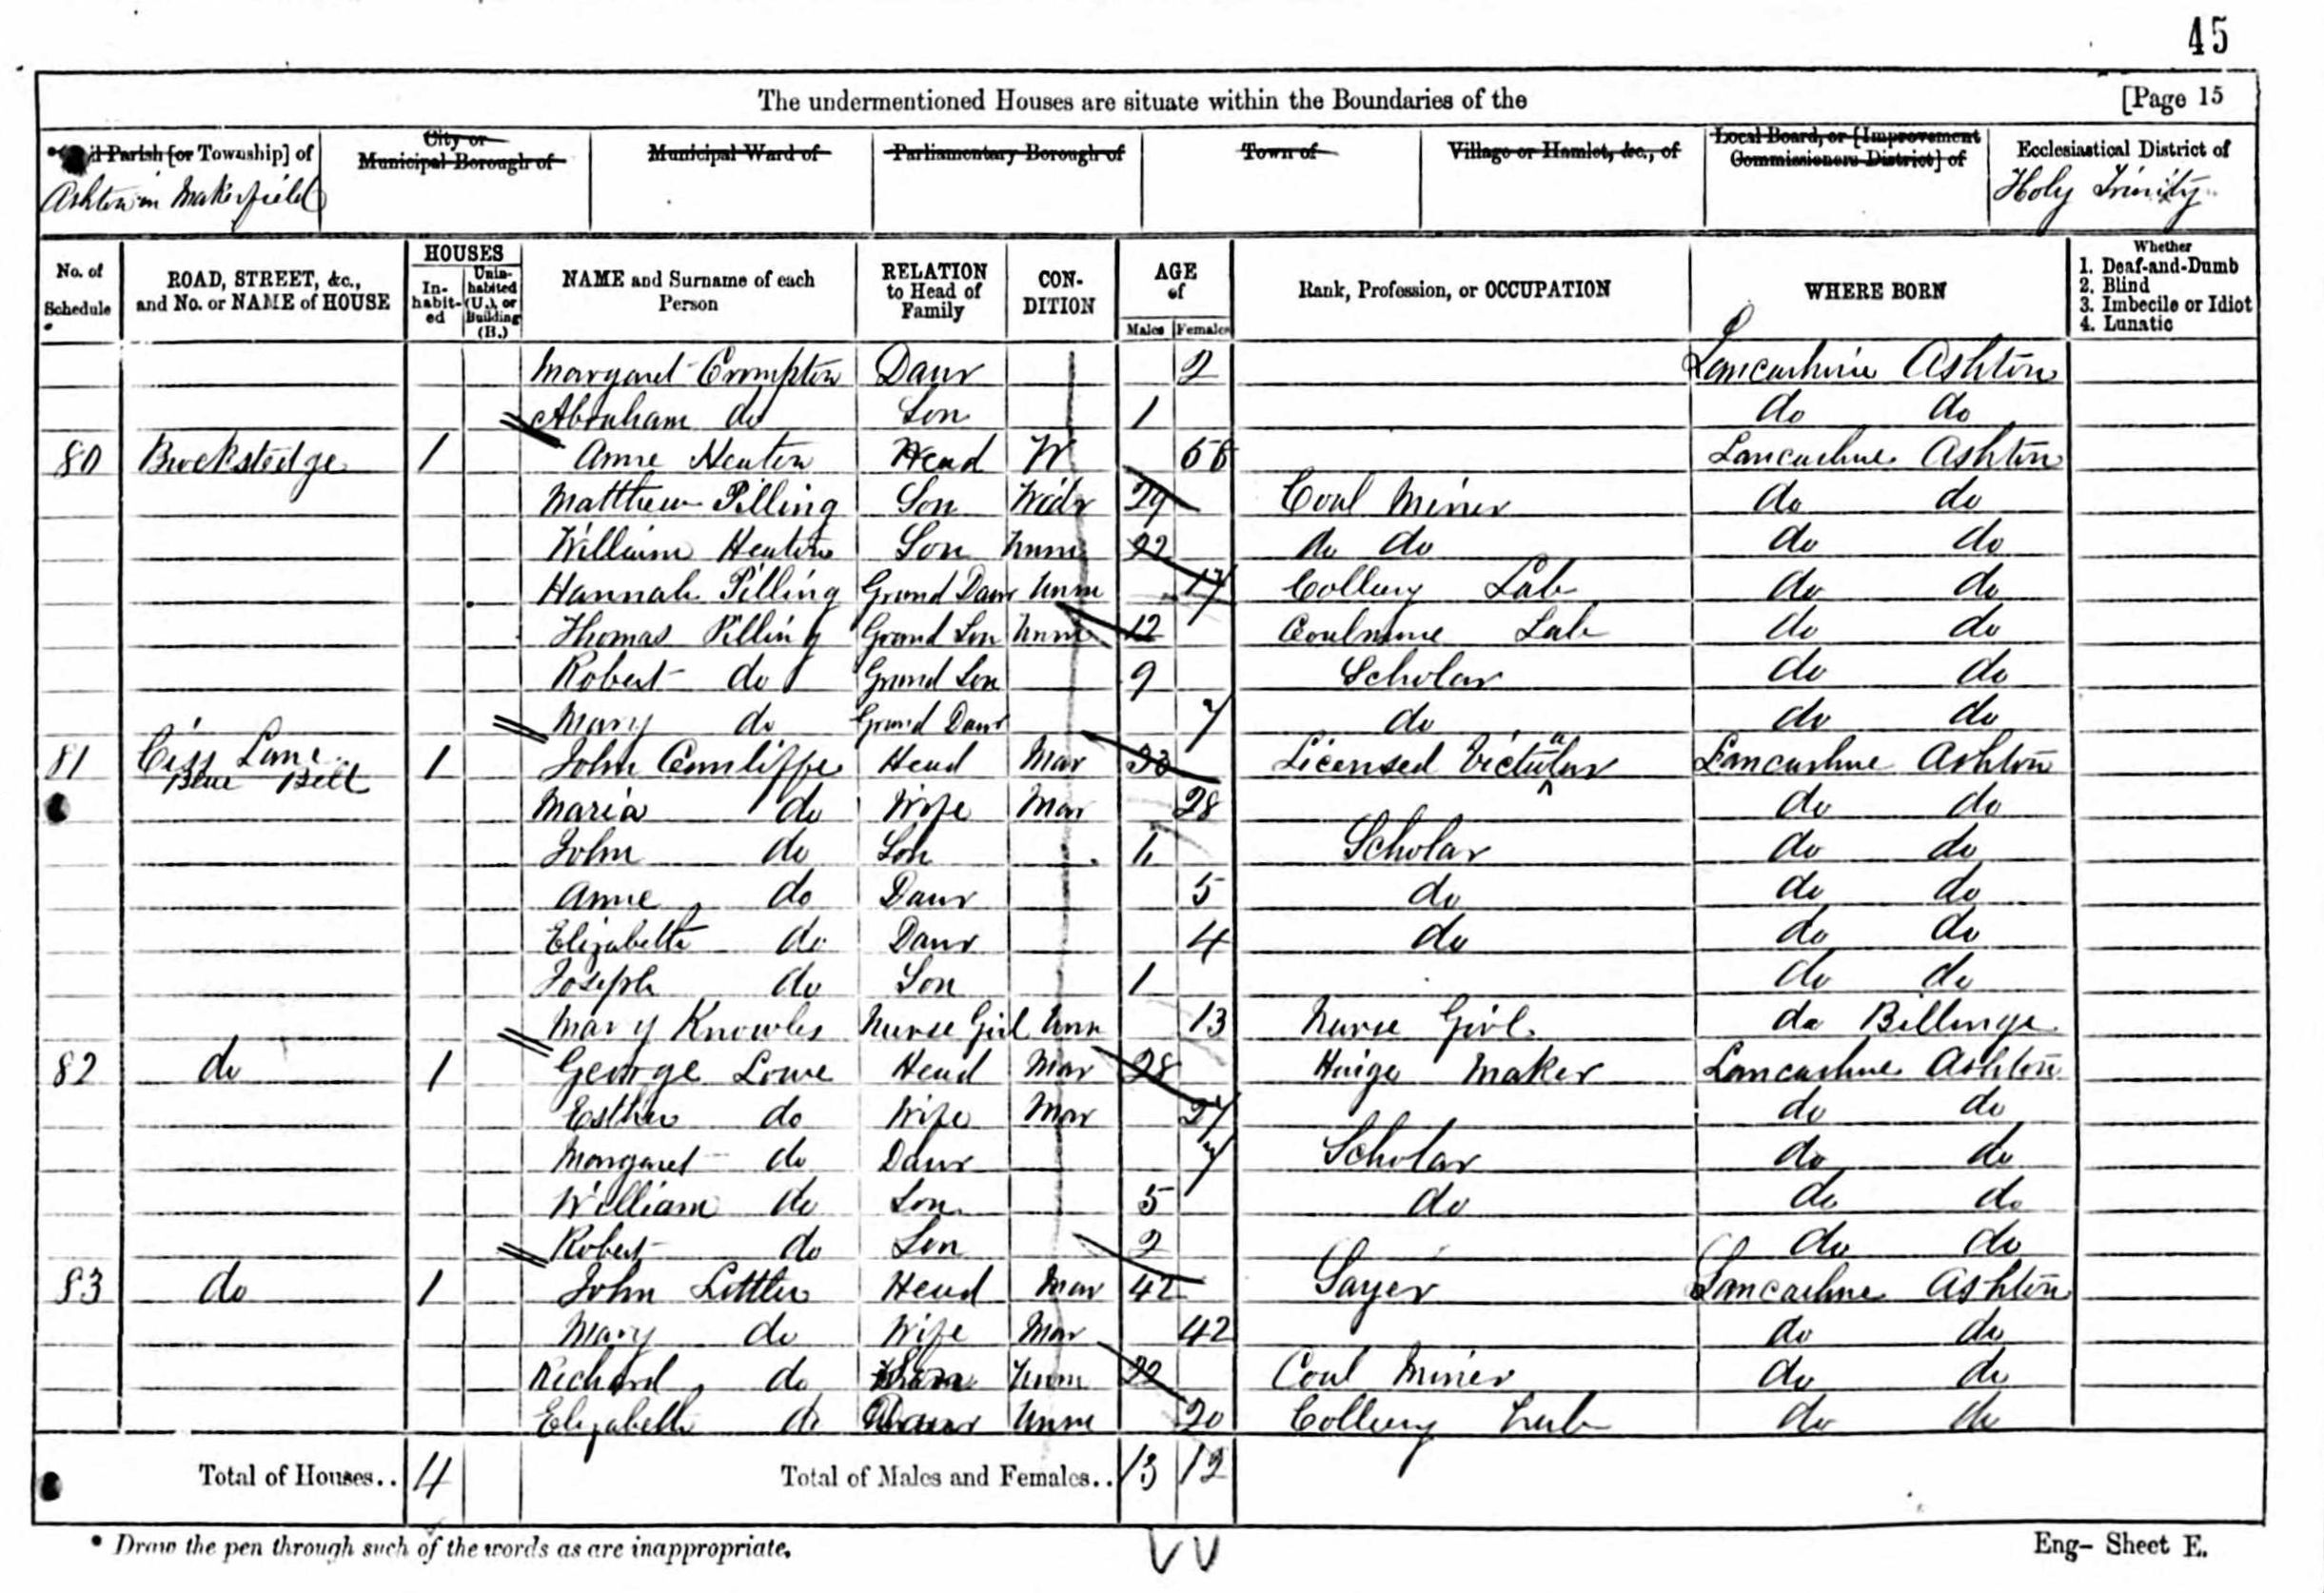 45
The undermentioned Houses are situate within the Boundaries of the [Page 15
Parish [or Township] of City or Municipal Borough of Municipal Ward of Parliamentary Borough of Town of Village or Hamlet, &c., of Local Board, or [Improvement Commissioners District] of Ecclesiastical District of
Ashton in Makerfield Holy Trinity
No. of Schedule ROAD, STREET, &c., and No. or NAME of HOUSE HOUSES Inhabited Uninhabited (U.), or Building (B.) NAME and Surname of each Person RELATION to Head of Family CONDITION AGE of Males Females Rank, Profession, or OCCUPATION WHERE BORN Whether 1. Deaf-and-Dumb 2. Blind 3. Imbecile or Idiot 4. Lunatic
Margaret Crompton Daur 2 Lancashire Ashton
Abraham do Son 1 do do
80 1 Anne Heaton Head W Lancashire Ashton
Matthew Pilling Son Widr 29 Coal Miner do do
William Heaton Son Unm 22 do do do do
Hannah Pilling Grand Daur Unm 17 Colliery Lab do do
Thomas Pilling Grand Son Unm 12 Coalmine Lab do do
Robert do Grand Son 9 Scholar do do
Mary do Grand Daur 7 do do do
81 Lane Blue Bell 1 John Cunliffe Head Mar Licensed Victualar Lancashire Ashton
Maria do Wife Mar 28 do do
John do Son Scholar do do
Anne do Daur 5 do do do
Elizabeth do Daur 4 do do do
Joseph do Son 1 do do
Mary Knowles Nurse Girl Unm 13 Nurse Girl do Billinge
82 do 1 George Lowe Head Mar 28 Hinge Maker Lancashire Ashton
Esther do Wife Mar 27 do do
Margaret do Daur 7 Scholar do do
William do Son 5 do do do
Robert do Son 2 do do
83 do 1 John Littler Head Mar 42 Sayer Lancashire Ashton
Mary do Wife Mar 42 do do
Richard do Unm 22 Coal Miner do do
Elizabeth do Daur Unm 20 Colliery Lab do do
Total of Houses.. 4 Total of Males and Females.. 13 12
* Draw the pen through such of the words as are inappropriate. Eng- Sheet E.